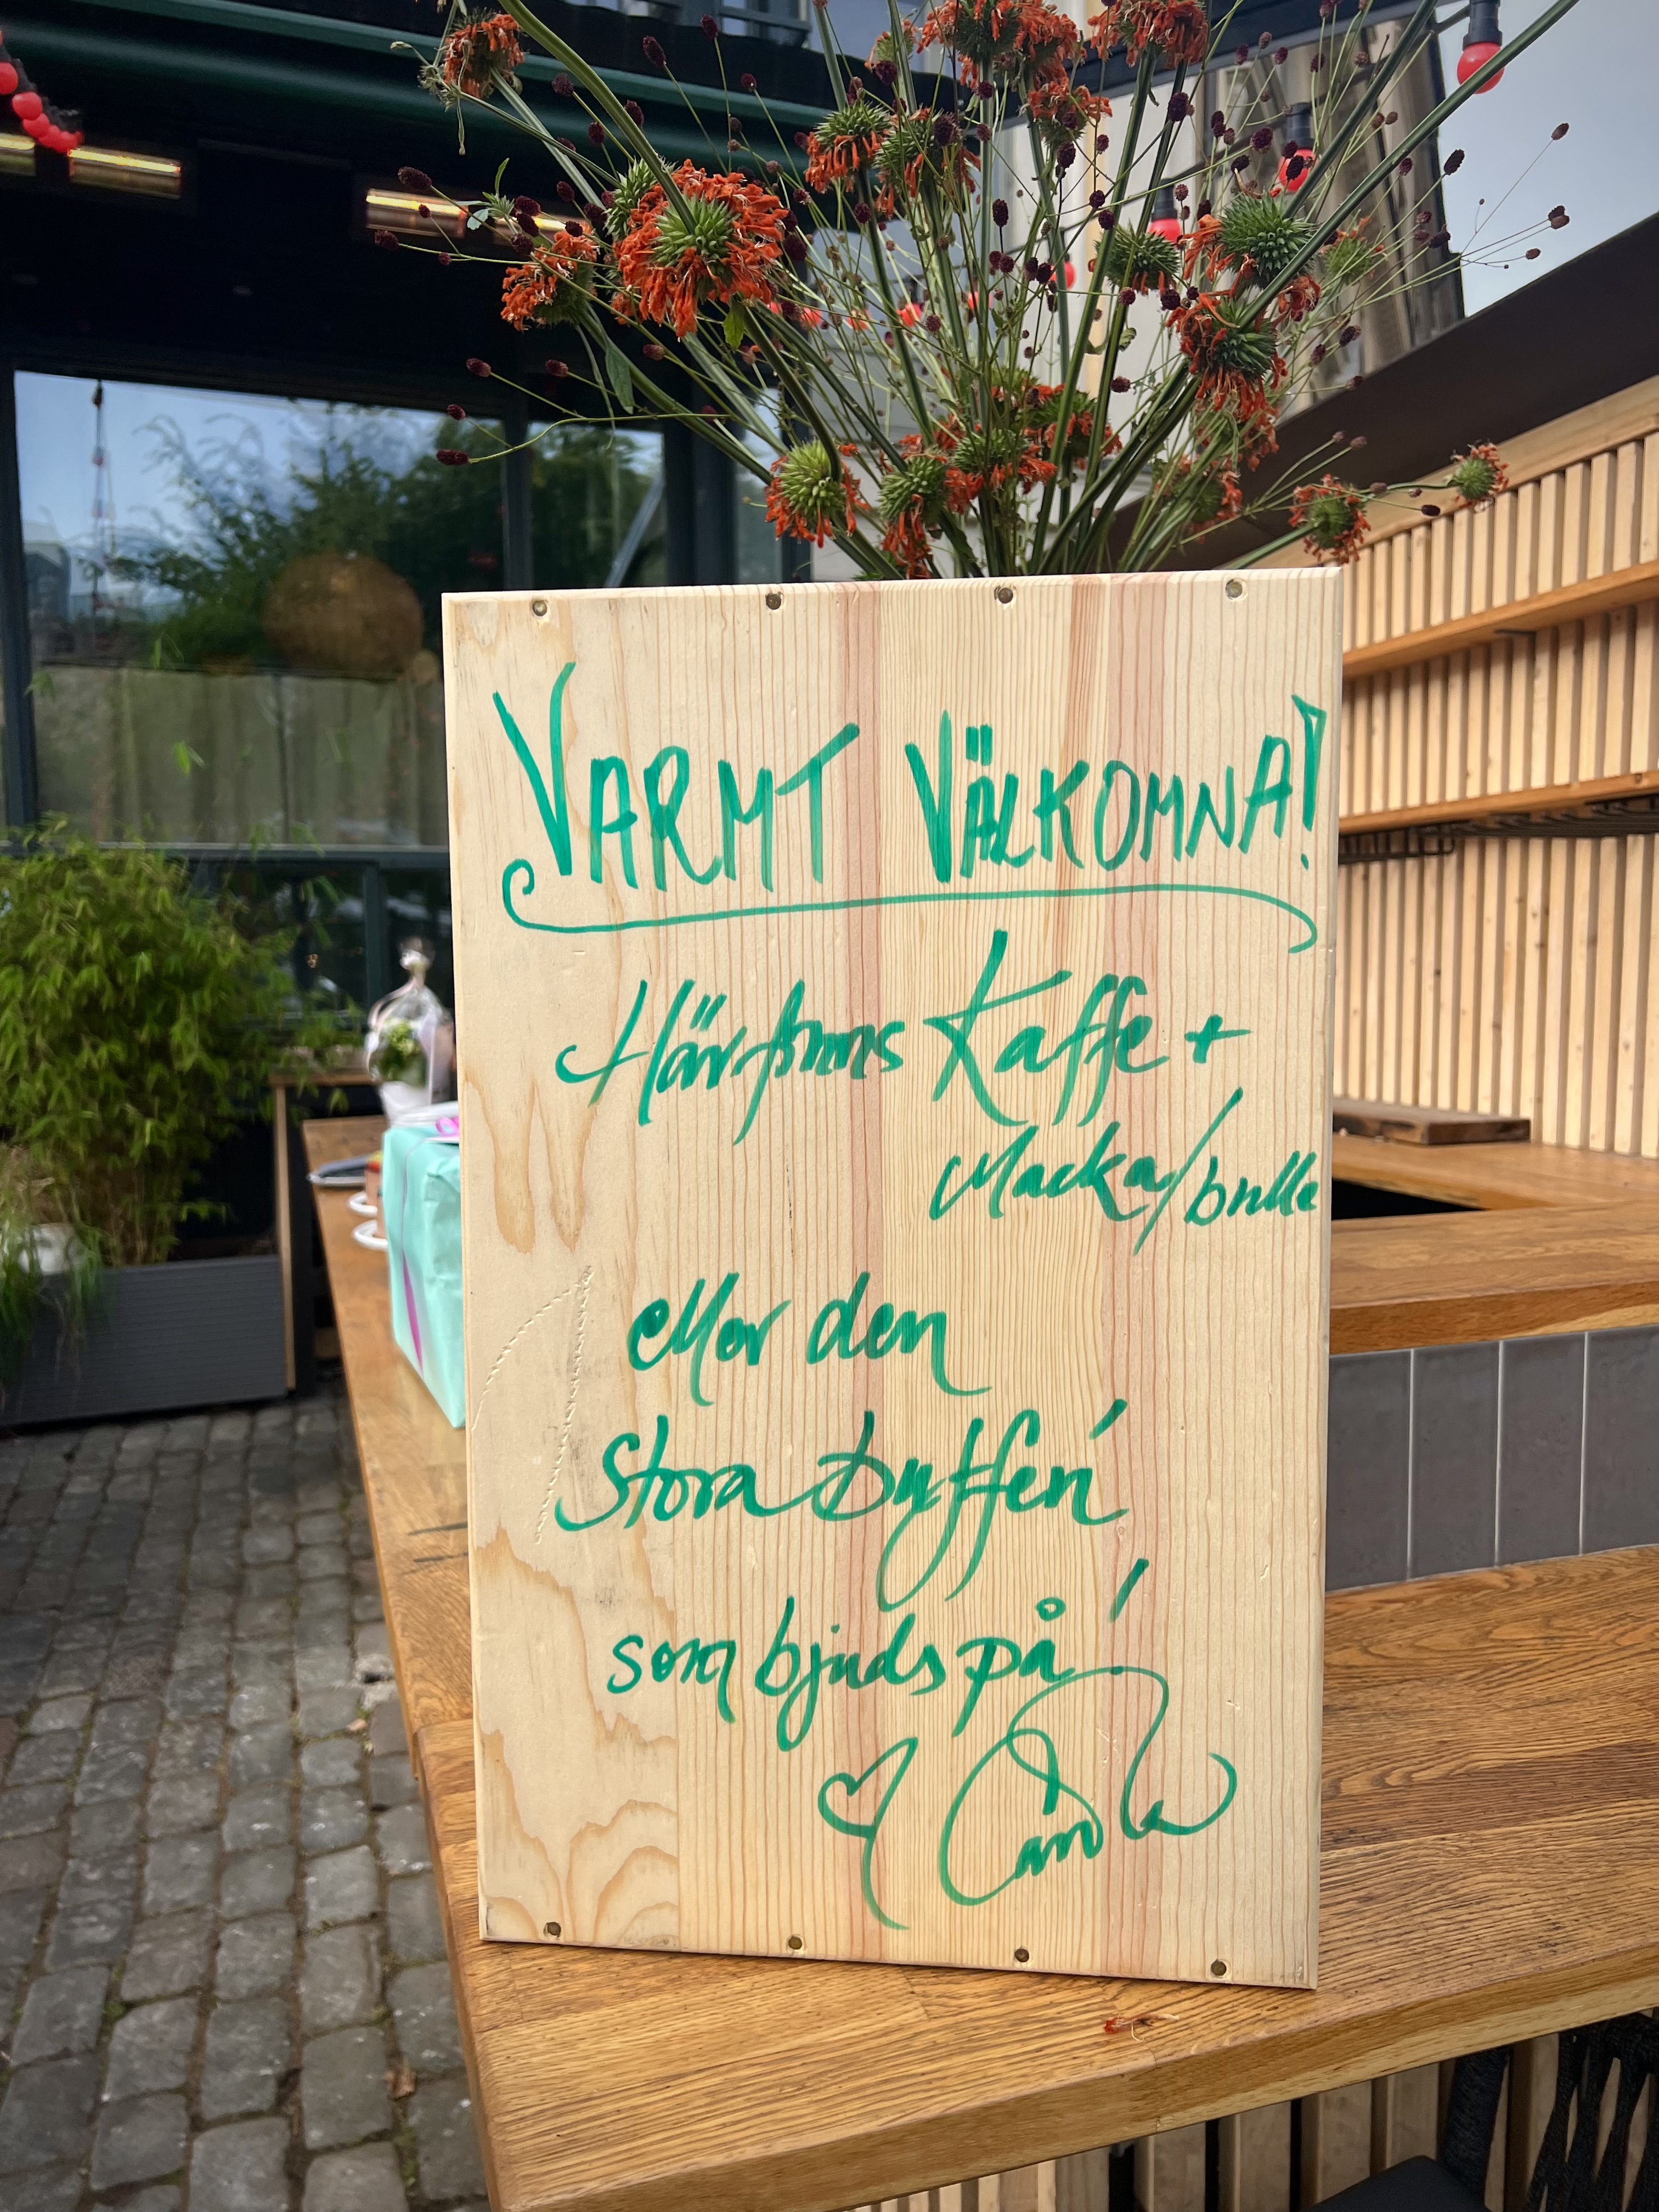 VARMT VÄLKOMNA!
Här finns Kaffe +
Macka/bulle
eller den
Stora Buffén
som bjuds på!
Carola